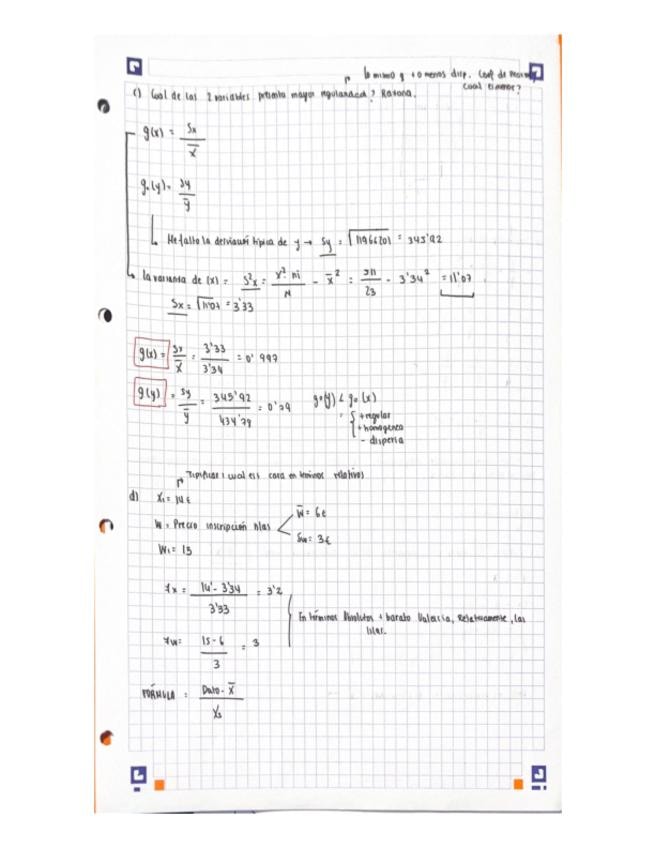 lo mismo q + o menos disp. Coef de
Cual es menor?
c) Cual de las 2 variables presenta mayor regularidad? Razona.
g(x) = Sx / x̄
g.(y) = Sy / ȳ
Me falto la desviación típica de y → Sy = √119662'01 = 345'92
la varianza de (x) = S²x = x²·ni / N - x̄² = 511 / 23 - 3'34² = 11'07
Sx = √11'07 = 3'33
g(x) = Sx / x̄ = 3'33 / 3'34 = 0'997
g(y) = Sy / ȳ = 345'92 / 434'79 = 0'79 g.(y) < g.(x)
= + regular
+ homogenea
- dispersa
Tipificar: cual es + cara en terminos relativos
d) X₁ = 14 €
W = Precio inscripción Islas W̄ = 6€
Sw = 3€
W₁ = 15
14 - 3'34 / 3'33 = 3'2
15 - 6 / 3 = 3
En términos Absolutos + barato Valencia, Relativamente, las
Islas.
FÓRMULA = Dato - x̄ / Xs